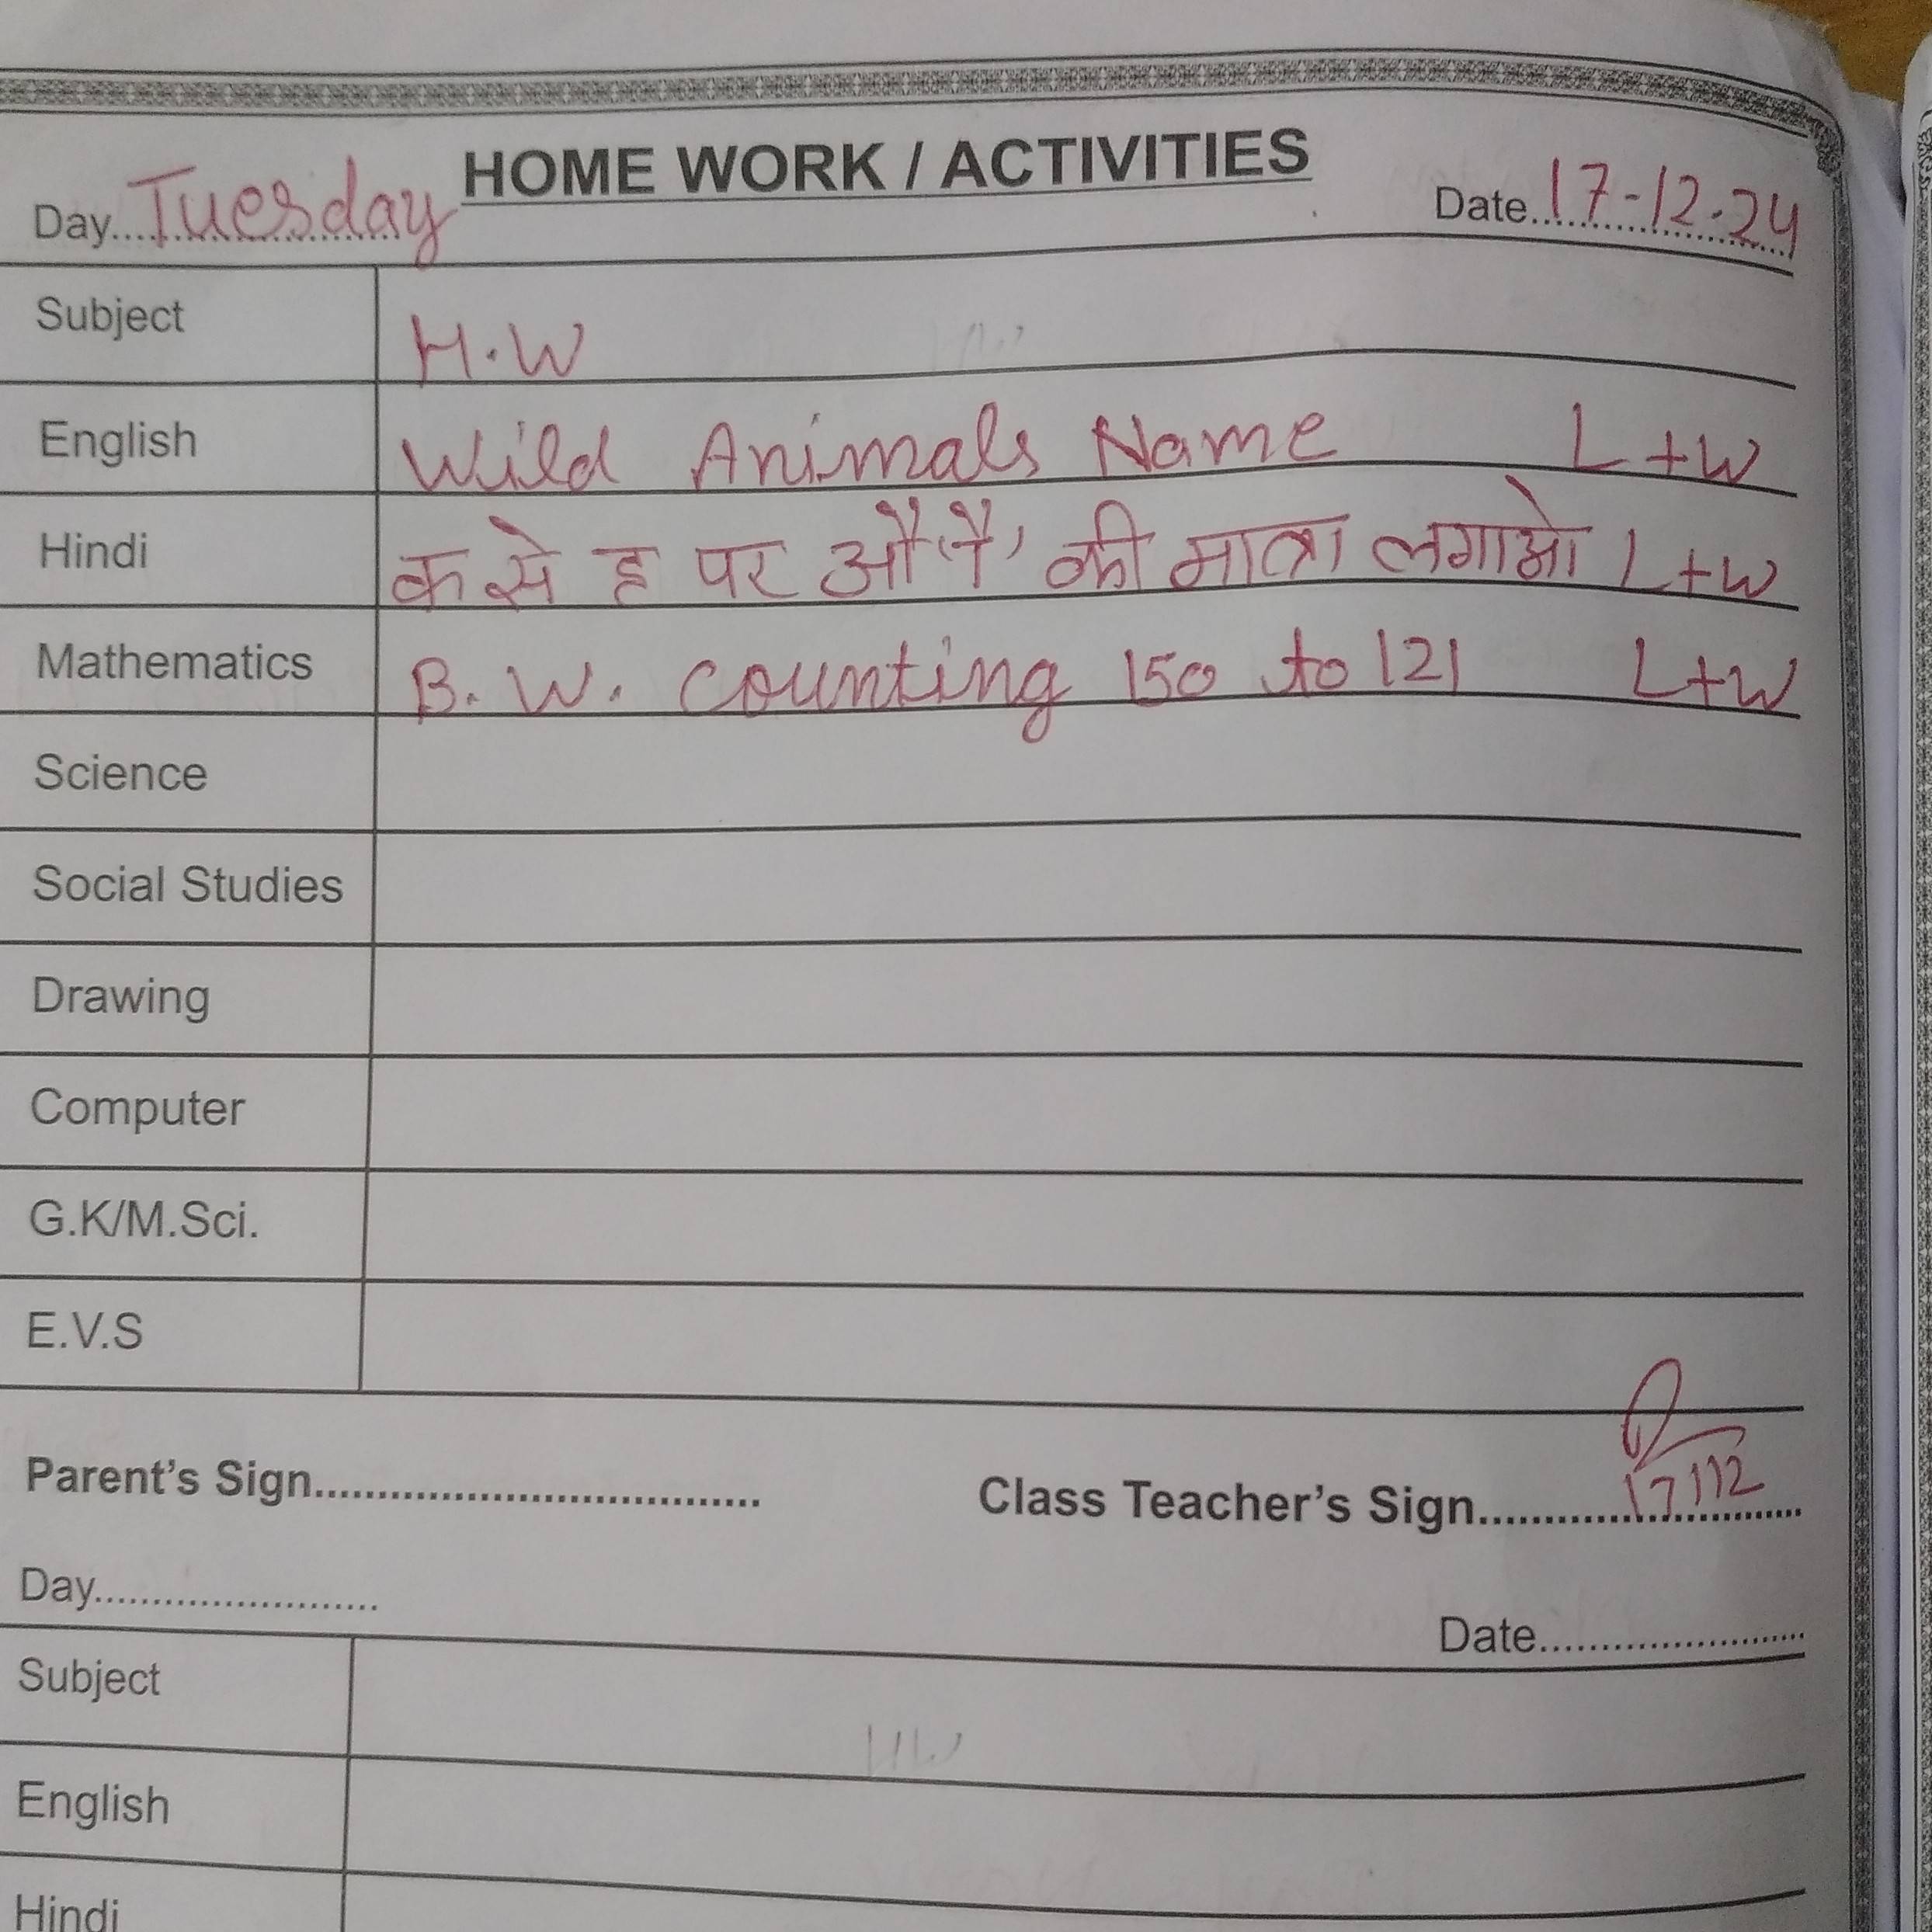 HOME WORK / ACTIVITIES
Day....Tuesday
Date..17-12-24
Subject H.W
English Wild Animals Name L+W
Hindi क से ह पर औ 'ौ' की मात्रा लगाओ L+W
Mathematics B. W. counting 150 to 121 L+W
Science
Social Studies
Drawing
Computer
G.K/M.Sci.
E.V.S
Parent's Sign....................................
Class Teacher's Sign.......................... 17/12
Day.........................
Date.........................
Subject
English
Hindi